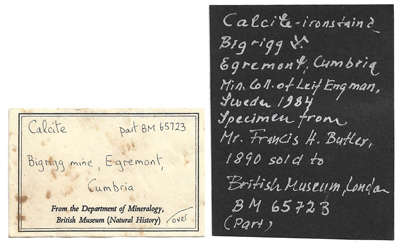 Calcite part BM 65723
Bigrigg mine, Egremont,
Cumbria
From the Department of Mineralogy,
British Museum (Natural History)
/over
Calcite - ironstained
Bigrigg
Egremont, Cumbria
Min. Coll. of Leif Engman,
Sweden 1984
Specimen from
Mr. Francis H. Butler,
1890 sold to
British Museum, London
BM 65723
(Part)